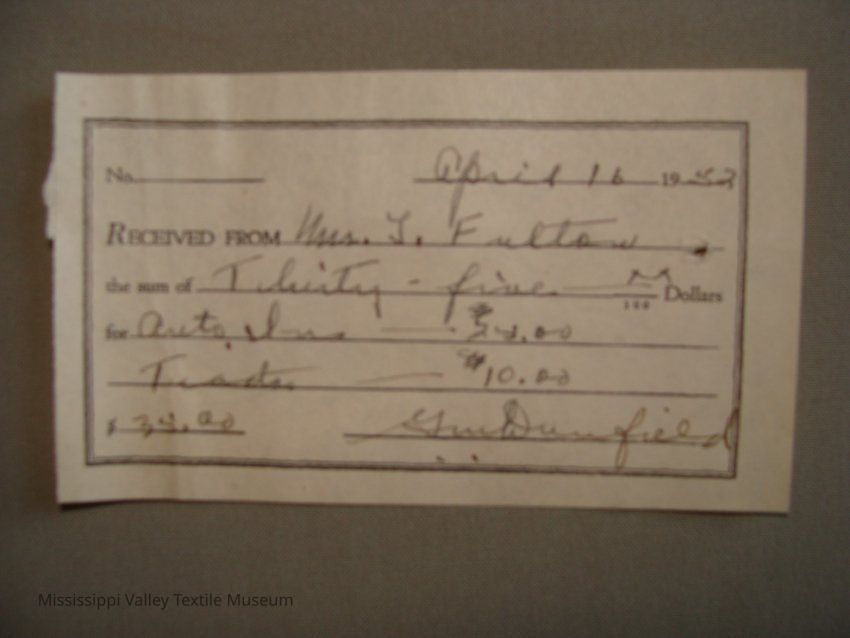 No. April 16 19
RECEIVED FROM Mrs. T. Fulton
the sum of Thirty - five 100 Dollars
for Auto Ins
$10.00
$ 35.00
Mississippi Valley Textile Museum